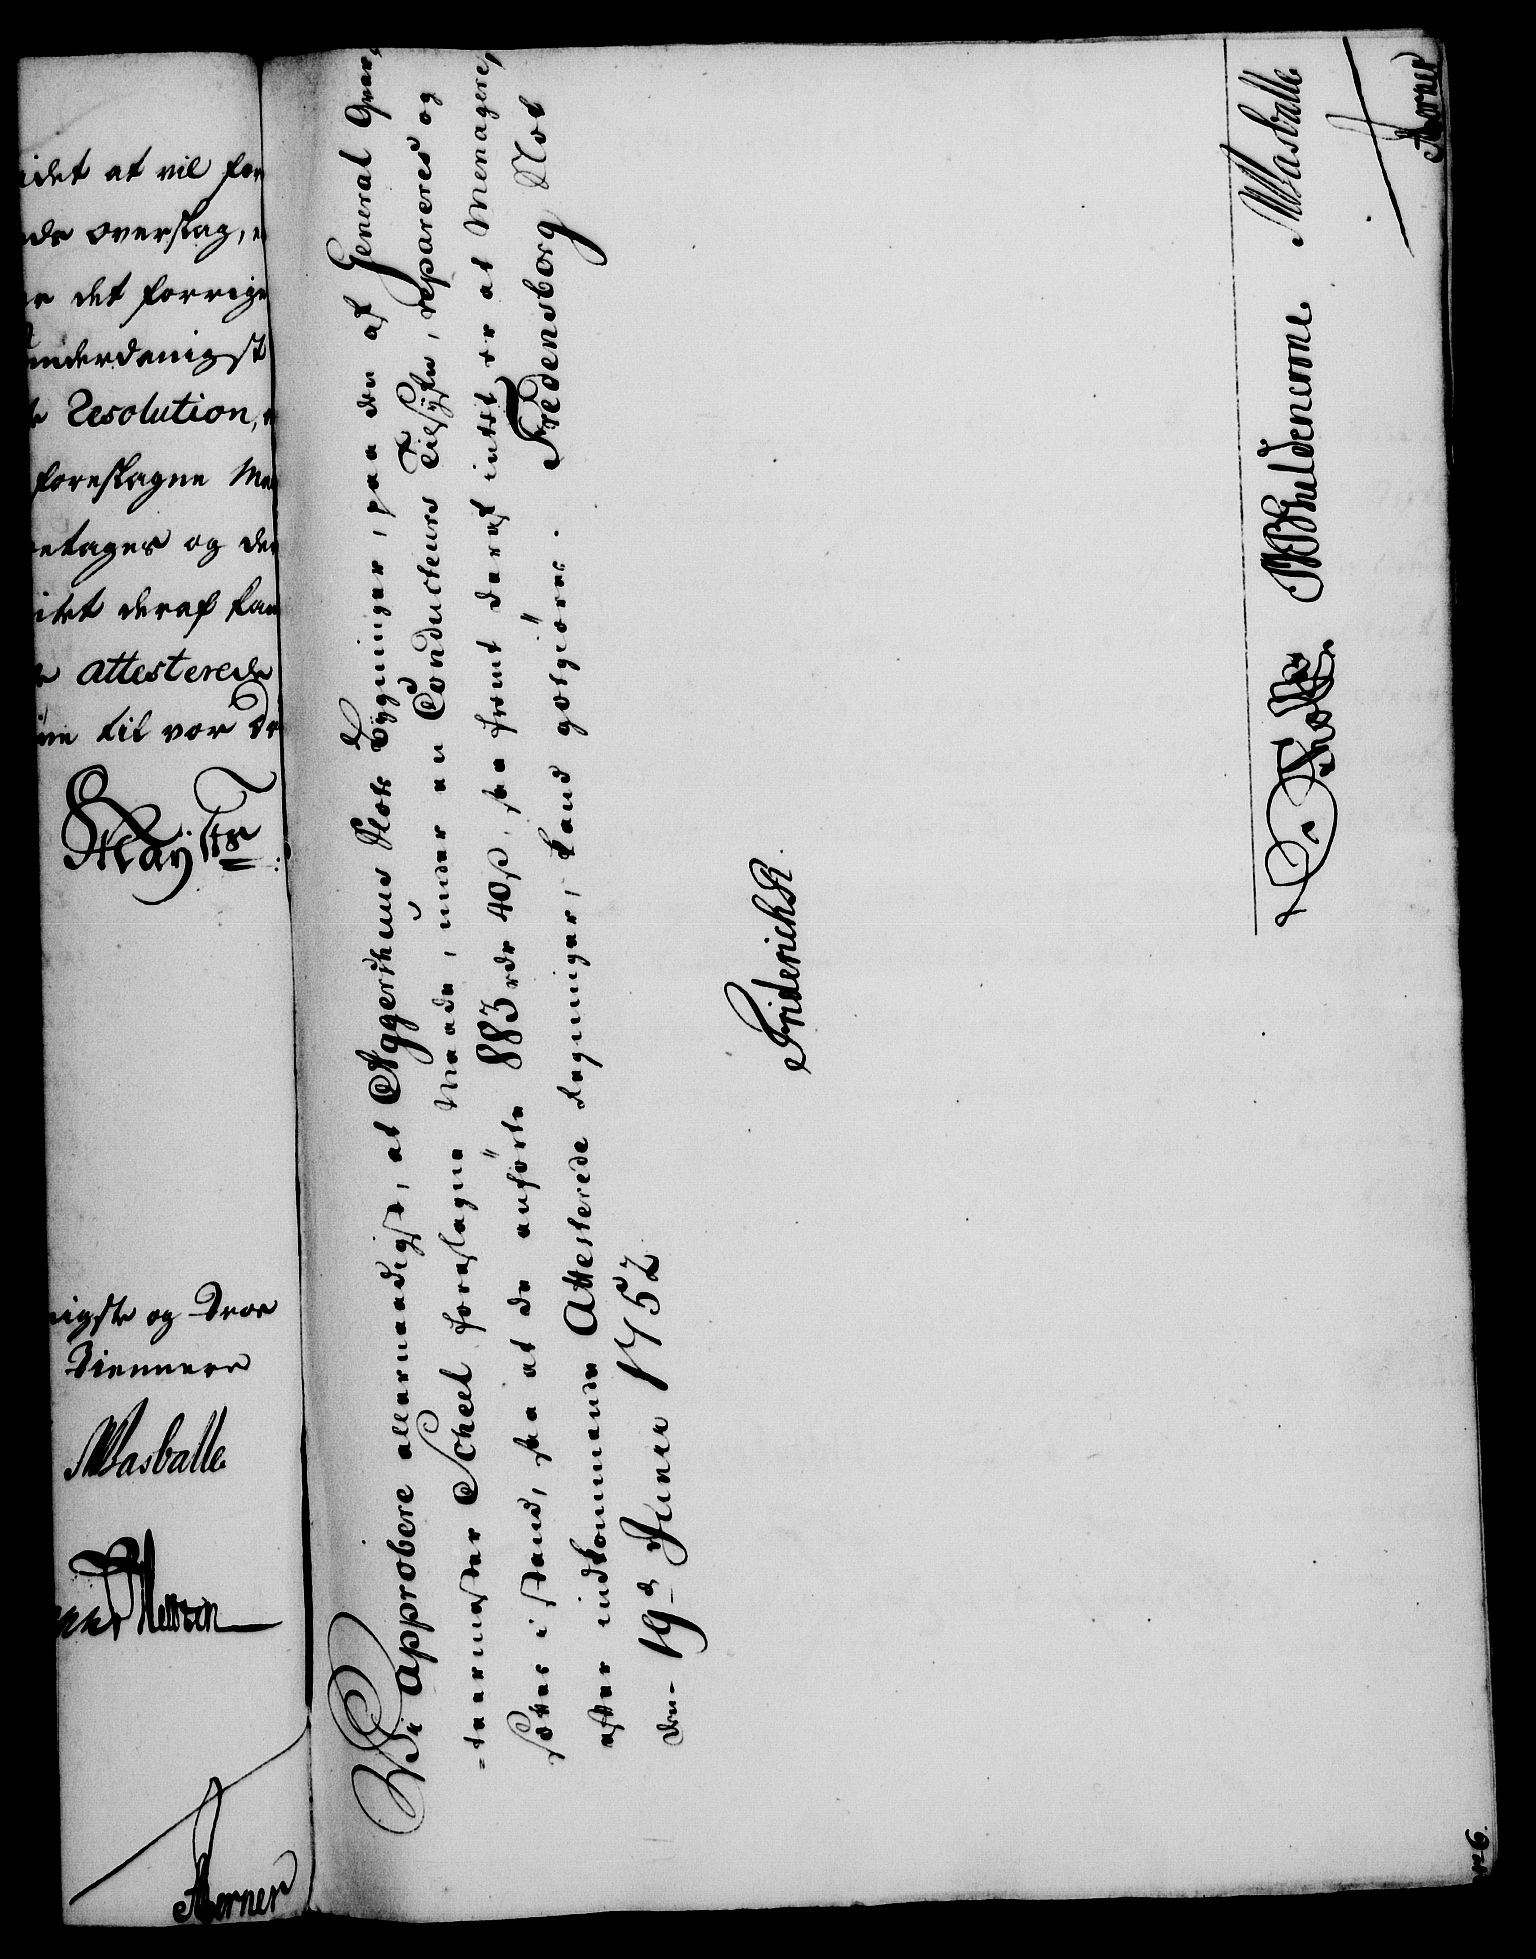 idet at vil for
de overslag,
det forrige
underdanigst
Resolution,
foreslagne
etages og
itet deraf kan
attesterede
til vor
Mayts
nigste og Troe
Tiennere
Masballe
Neuson
Korner
Vi Approbere allernaadigst, at Aggershuus Slots Bygninger, paa den af General Qvar,
-teermester Scheel foreslagne Maade, under en Conducteurs Tilsyn, repareres og
sættes i stand, saa at de anførte 883 rdr 40 ß, saa fremt deraf intet er at Menagere,
efter indkommende Attesterede Regninger, kand godtgiøres. Fredensborg Slot
den 19de Junii 1752
Friderich R
Masballe
Korner
126.